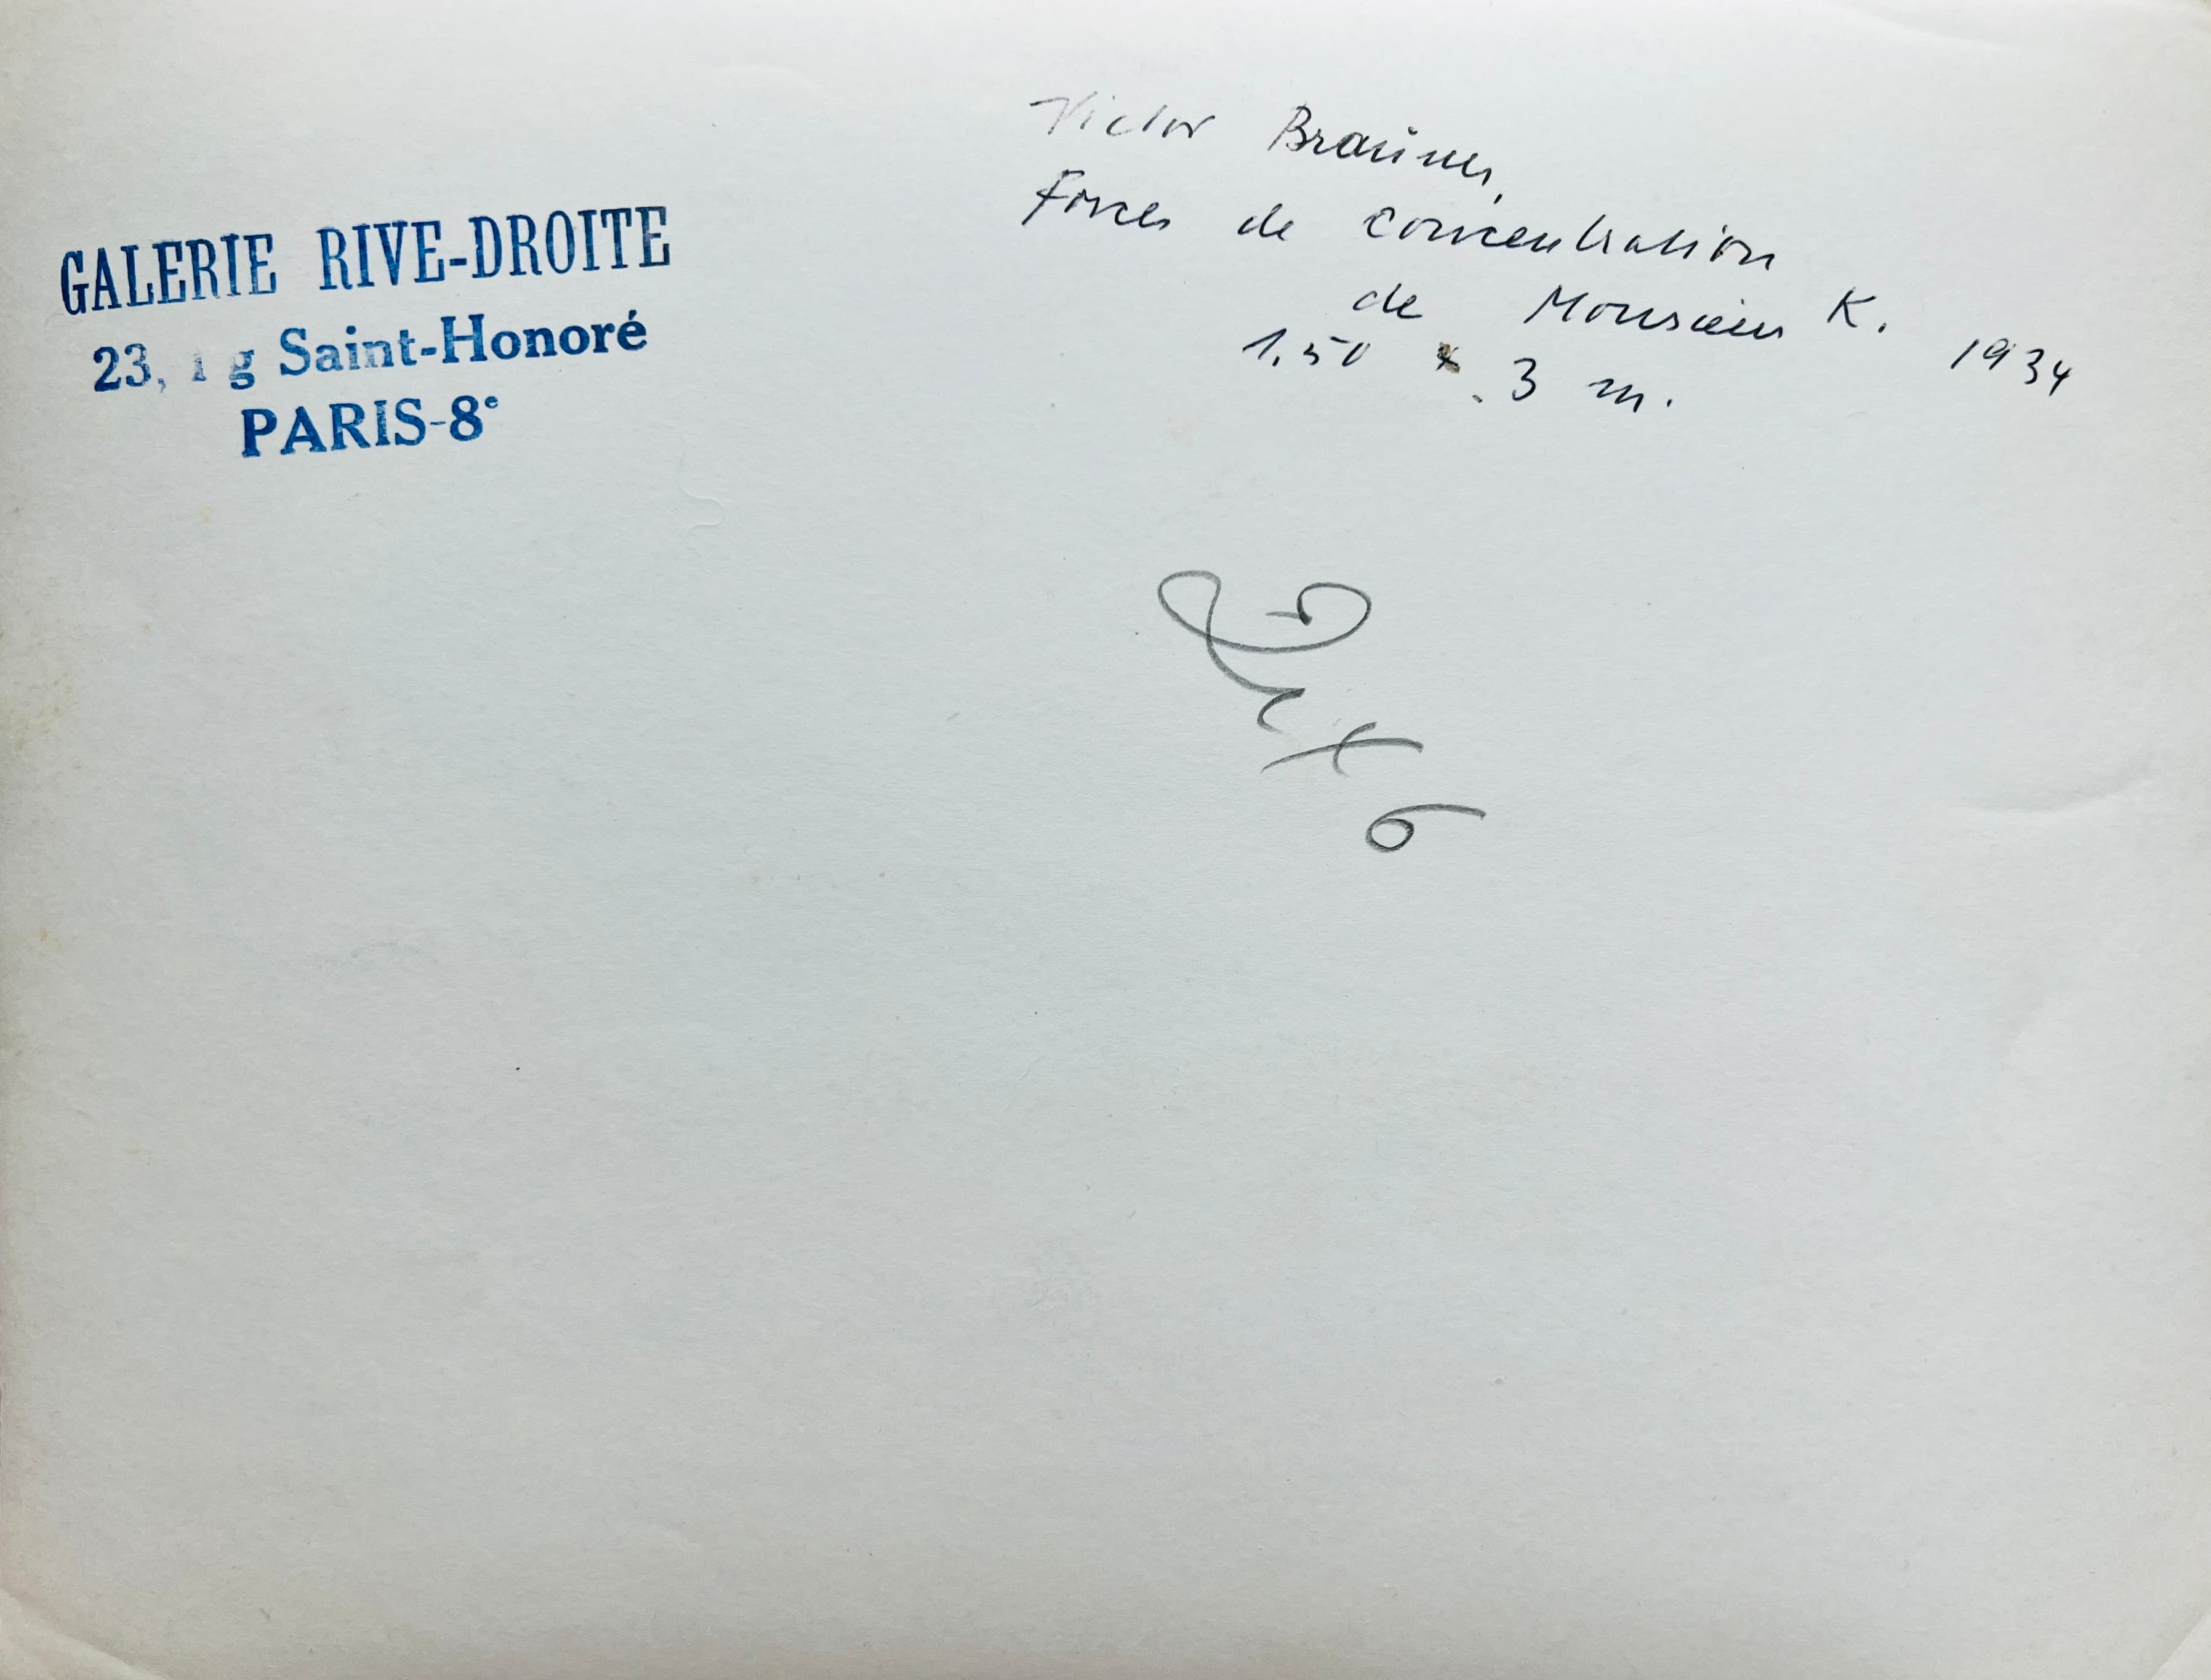 GALERIE RIVE-DROITE
23, Fg Saint-Honoré
PARIS-8e
Victor Brauner,
Forces de concentration
de Monsieur K. 1934
1.50 x 3 m.